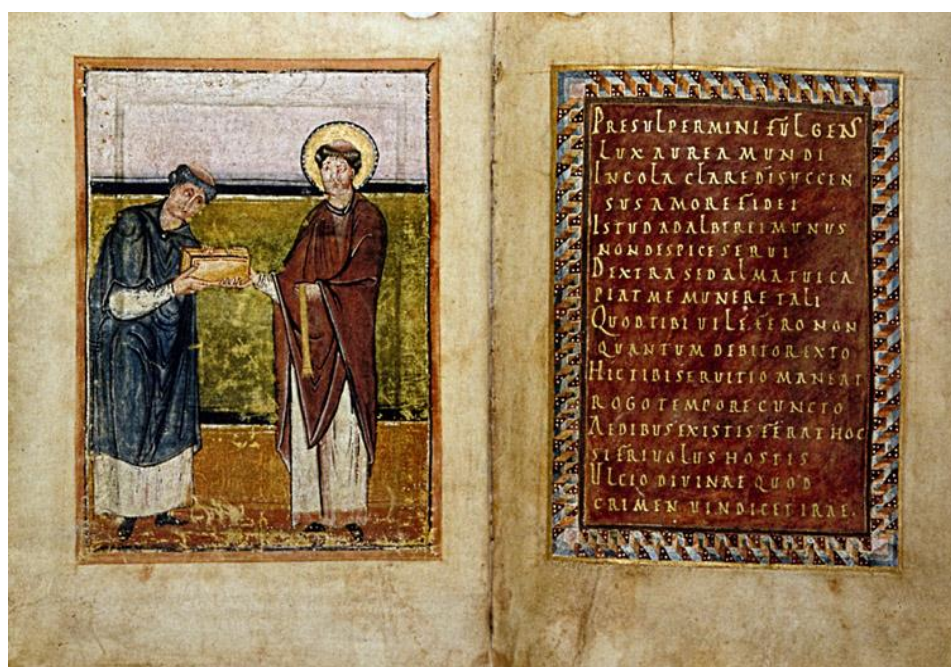 PRESUL PERMINI FULGENS
LUX AUREA MUNDI
INCOLA CLARE DI SUCCEN
SUS AMORE FIDEI
ISTUD ADALBEREI MUNUS
NON DESPICE SERUI
DEXTRA SED ALMA TUI CA
PIAT ME MUNERE TALI
QUOD TIBI UILE FERO NON
QUANTUM DEBITOR EXTO
HIC TIBI SERUITIO MANEAT
ROGO TEMPORE CUNCTO
AEDIBUS EX ISTIS FERAT HOC
SI FRIUOLUS HOSTIS
ULCIO DIUINAE QUOD
CRIMEN UINDICET IRAE.